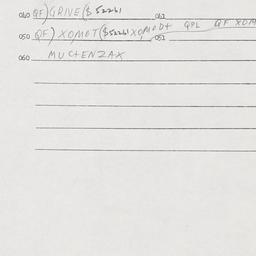 040 QF) GRIVE ($52261 042
050 QF) XOMOT ($52261 XOMODT QPL QF XOM
052
060 MUCTENZAX